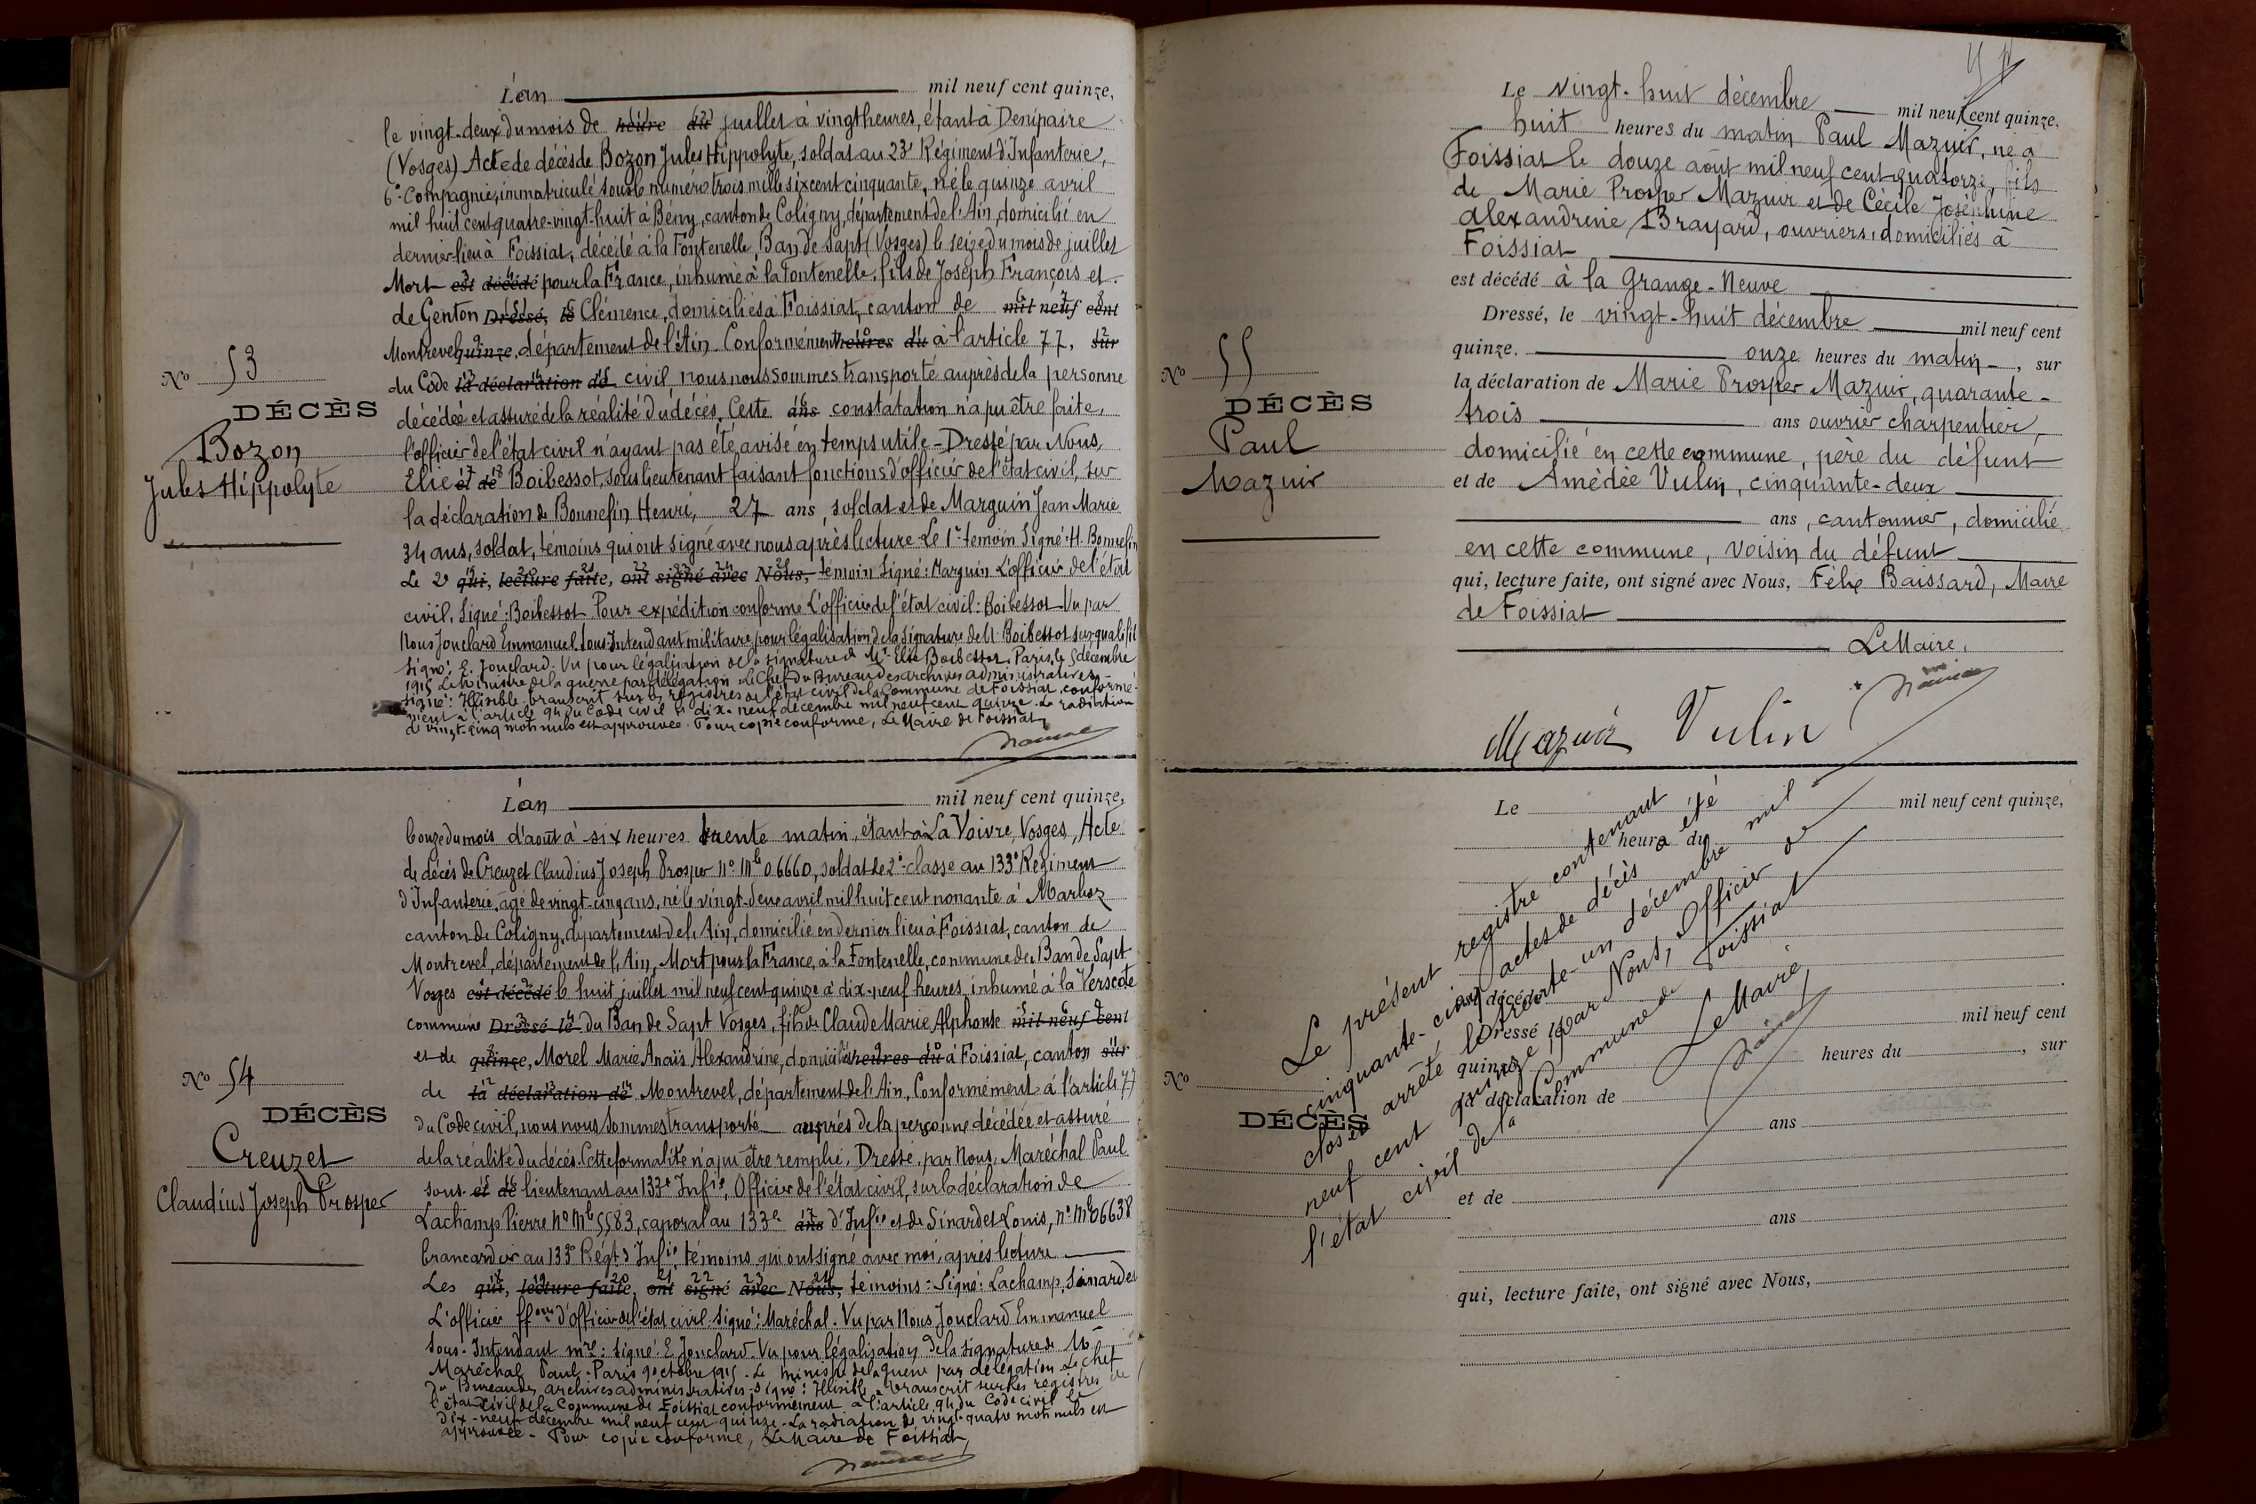 L'an mil neuf cent quinze,
le vingt-deux du mois de heure du juillet à vingt heures, étant à Denipaire
(Vosges) Acte de décès de Bozon Jules Hippolyte, soldat au 23e Régiment d'Infanterie,
6e Compagnie, immatriculé sous le numéro trois mille six cent cinquante, né le quinze avril
mil huit cent quatre-vingt-huit à Bény, canton de Coligny, département de l'Ain, domicilié en
dernier lieu à Foissiat, décédé à la Fontenelle, Ban de Sapt (Vosges) le seize du mois de juillet
Mort est décédé pour la France, inhumé à la Fontenelle, fils de Joseph François et
de Genton Dressé, le Clémence, domiciliés à Foissiat, canton de mil neuf cent
Montrevel, quinze, département de l'Ain. Conformément heures du à l'article 77, sur
du Code la déclaration de civil nous nous sommes transporté auprès de la personne
décédée et assuré de la réalité du décès. Cette ans constatation n'a pu être faite,
l'officier de l'état civil n'ayant pas été avisé en temps utile - Dressé par Nous,
Elie et de Boibessot, sous lieutenant faisant fonctions d'officier de l'état civil, sur
la déclaration de Bonnefin Henri, 27 ans, soldat et de Marguin Jean Marie
34 ans, soldat, témoins qui ont signé avec nous après lecture. Le 1er témoin Signé: H. Bonnefin
Le 2e qui, lecture faite, ont signé avec Nous, témoin Signé: Marguin L'officier de l'état
civil, Signé: Boibessot. Pour expédition conforme L'officier de l'état civil: Boibessot. Vu par
Nous Jouclard Emmanuel Sous-Intendant militaire pour légalisation de la signature de M. Boibessot susqualifié
Signé: E. Jouclard. Vu pour légalisation de la signature de Mr Elie Boibessot. Paris, le 5 décembre
1915 Le Ministre de la guerre par délégation Le Chef du Bureau des archives administratives
Signé: Illisible. Transcrit sur les registres de l'état civil de la Commune de Foissiat, conformé-
ment à l'article 94 du Code civil le dix-neuf décembre mil neuf cent quinze. La radiation
de vingt-cinq mots nuls est approuvée. Pour copie conforme, Le Maire de Foissiat,
No 53
DÉCÈS
Bozon
Jules Hippolyte
L'an mil neuf cent quinze,
le onze du mois d'août à six heures trente matin, étant à La Voivre, Vosges, Acte
de décès de Creuzet Claudius Joseph Prosper No Mle 06660, soldat de 2e classe au 133e Régiment
d'Infanterie, âgé de vingt-cinq ans, né le vingt-deux avril mil huit cent nonante à Marboz
canton de Coligny, département de l'Ain, domicilié en dernier lieu à Foissiat, canton de
Montrevel, département de l'Ain, Mort pour la France, à la Fontenelle, commune du Ban de Sapt
Vosges est décédé le huit juillet mil neuf cent quinze à dix-neuf heures, inhumé à la Verscote
commune Dressé le du Ban de Sapt Vosges, fils de Claude Marie Alphonse mil neuf cent
et de quinze, Morel Marie Anaïs Alexandrine, domiciliés heures du à Foissiat, canton sur
de la déclaration de Montrevel, département de l'Ain, Conformément à l'article 77
du Code civil, nous nous sommes transporté auprès de la personne décédée et assuré
de la réalité du décès. Cette formalité n'a pu être remplie. Dressé, par Nous, Maréchal Paul
sous-et de lieutenant au 133e Infie, Officier de l'état civil, sur la déclaration de
Lachamp Pierre No Mle 5583, caporal au 133e ans d'Infie et de Sinardet Louis, no Mle 06638
brancardier au 133e Régt d'Infie, témoins qui ont signé avec moi, après lecture
Les qui, lecture faite, ont signé avec Nous, témoins: Signé: Lachamp, Sinardet
L'officier ffons d'officier de l'état civil. Signé: Maréchal. Vu par Nous Jouclard Emmanuel
Sous-Intendant mre: Signé: E Jouclard. Vu pour légalisation de la signature de M
Maréchal Paul. Paris 9 octobre 1915. Le ministre de la guerre par délégation Le chef
du Bureau des archives administratives. Signé: Illisible. Transcrit sur les registres de
l'état civil de la Commune de Foissiat conformément à l'article 94 du Code civil le
dix-neuf décembre mil neuf cent quinze. La radiation de vingt-quatre mots nuls est
approuvée. Pour copie conforme, Le Maire de Foissiat,
No 54
DÉCÈS
Creuzet
Claudius Joseph Prosper
Le vingt-huit décembre mil neuf cent quinze,
huit heures du matin Paul Mazuir, né à
Foissiat le douze août mil neuf cent quatorze, fils
de Marie Prosper Mazuir et de Cécile Joséphine
Alexandrine Brayard, ouvriers, domiciliés à
Foissiat
est décédé à la Grange-Neuve
Dressé, le vingt-huit décembre mil neuf cent
quinze. onze heures du matin, sur
la déclaration de Marie Prosper Mazuir, quarante-
trois ans ouvrier charpentier,
domicilié en cette commune, père du défunt
et de Amédée Vulin, cinquante-deux
ans, cantonnier, domicilié
en cette commune, voisin du défunt
qui, lecture faite, ont signé avec Nous, Félix Baissard, Maire
de Foissiat
Le Maire,
Mazuir Vulin
No 55
DÉCÈS
Paul
Mazuir
Le mil neuf cent quinze,
heure du
est décédé
Dressé, le mil neuf cent
quinze, heures du , sur
la déclaration de
ans
et de
ans
qui, lecture faite, ont signé avec Nous,
No
DÉCÈS
Le présent registre contenant
cinquante-cinq actes de décès a été
clos et arrêté le trente-un décembre mil
neuf cent quinze, par Nous, Officier de
l'état civil de la Commune de Foissiat
Le Maire,